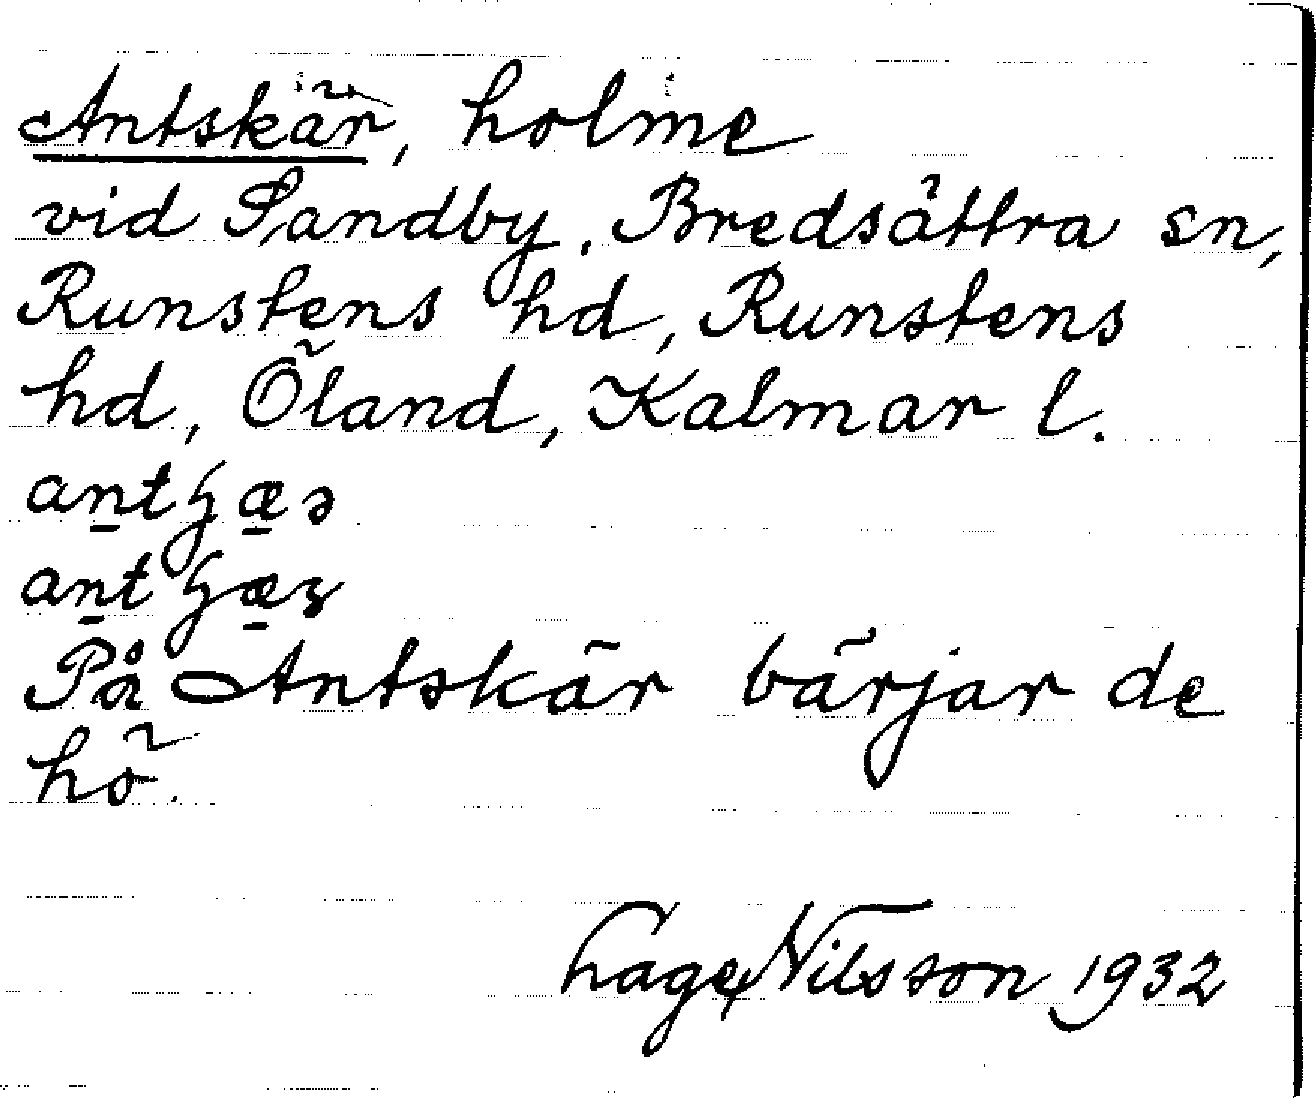 Antskär, holme
vid Sandby, Bredsättra sn,
Runstens hd, Runstens
hd, Öland, Kalmar l.
På Antskär bärjar de
hö.
Hage Nilsson 1932